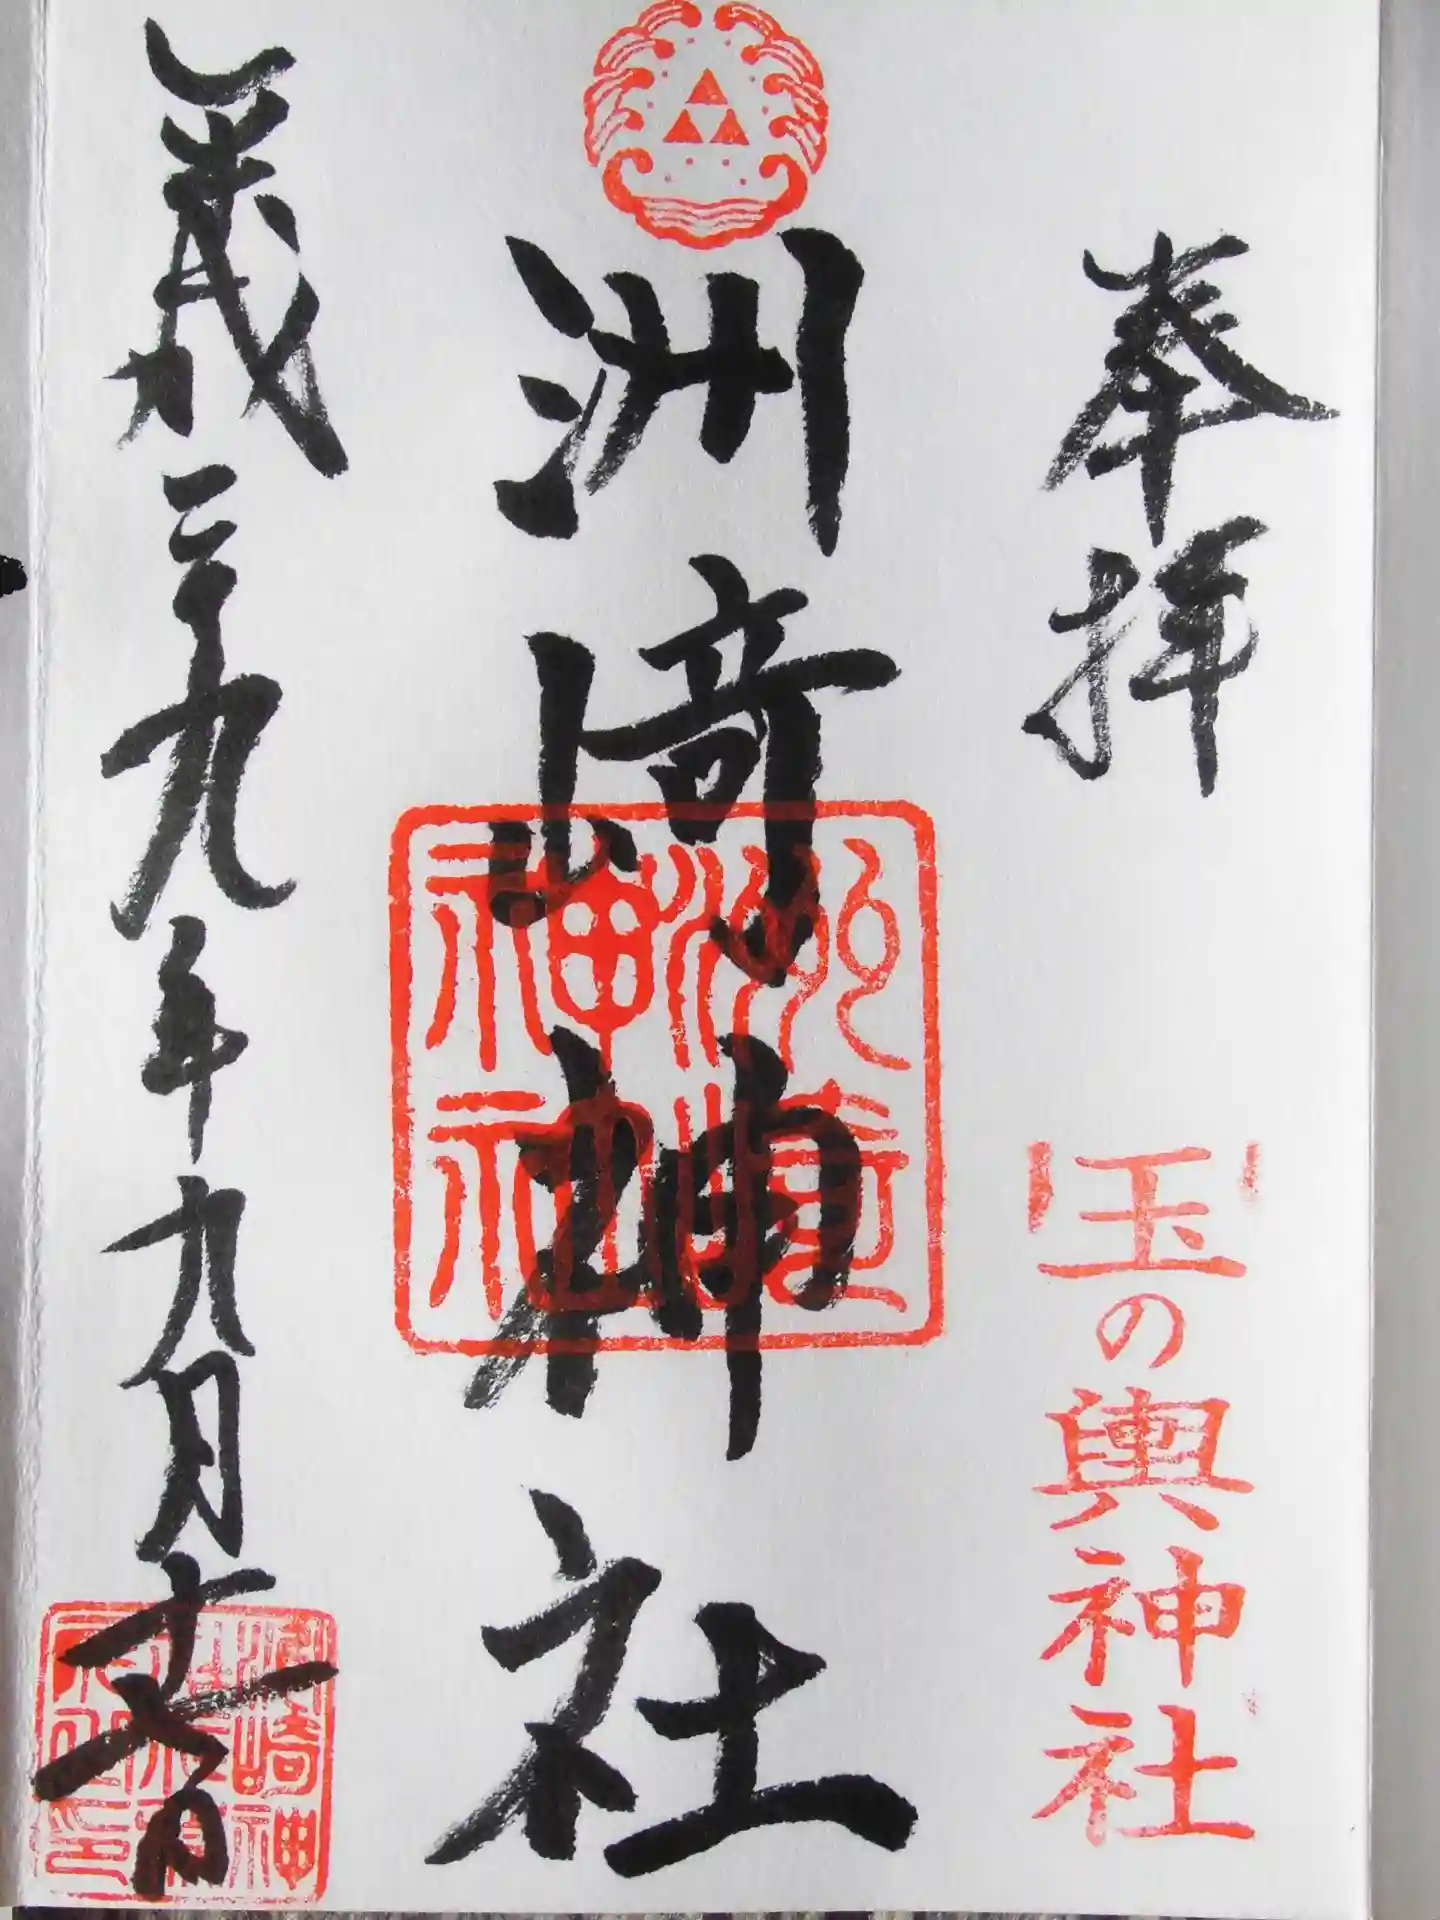 奉拝
玉の輿神社
洲崎神社
洲崎神社
平成二十九年九月十六日